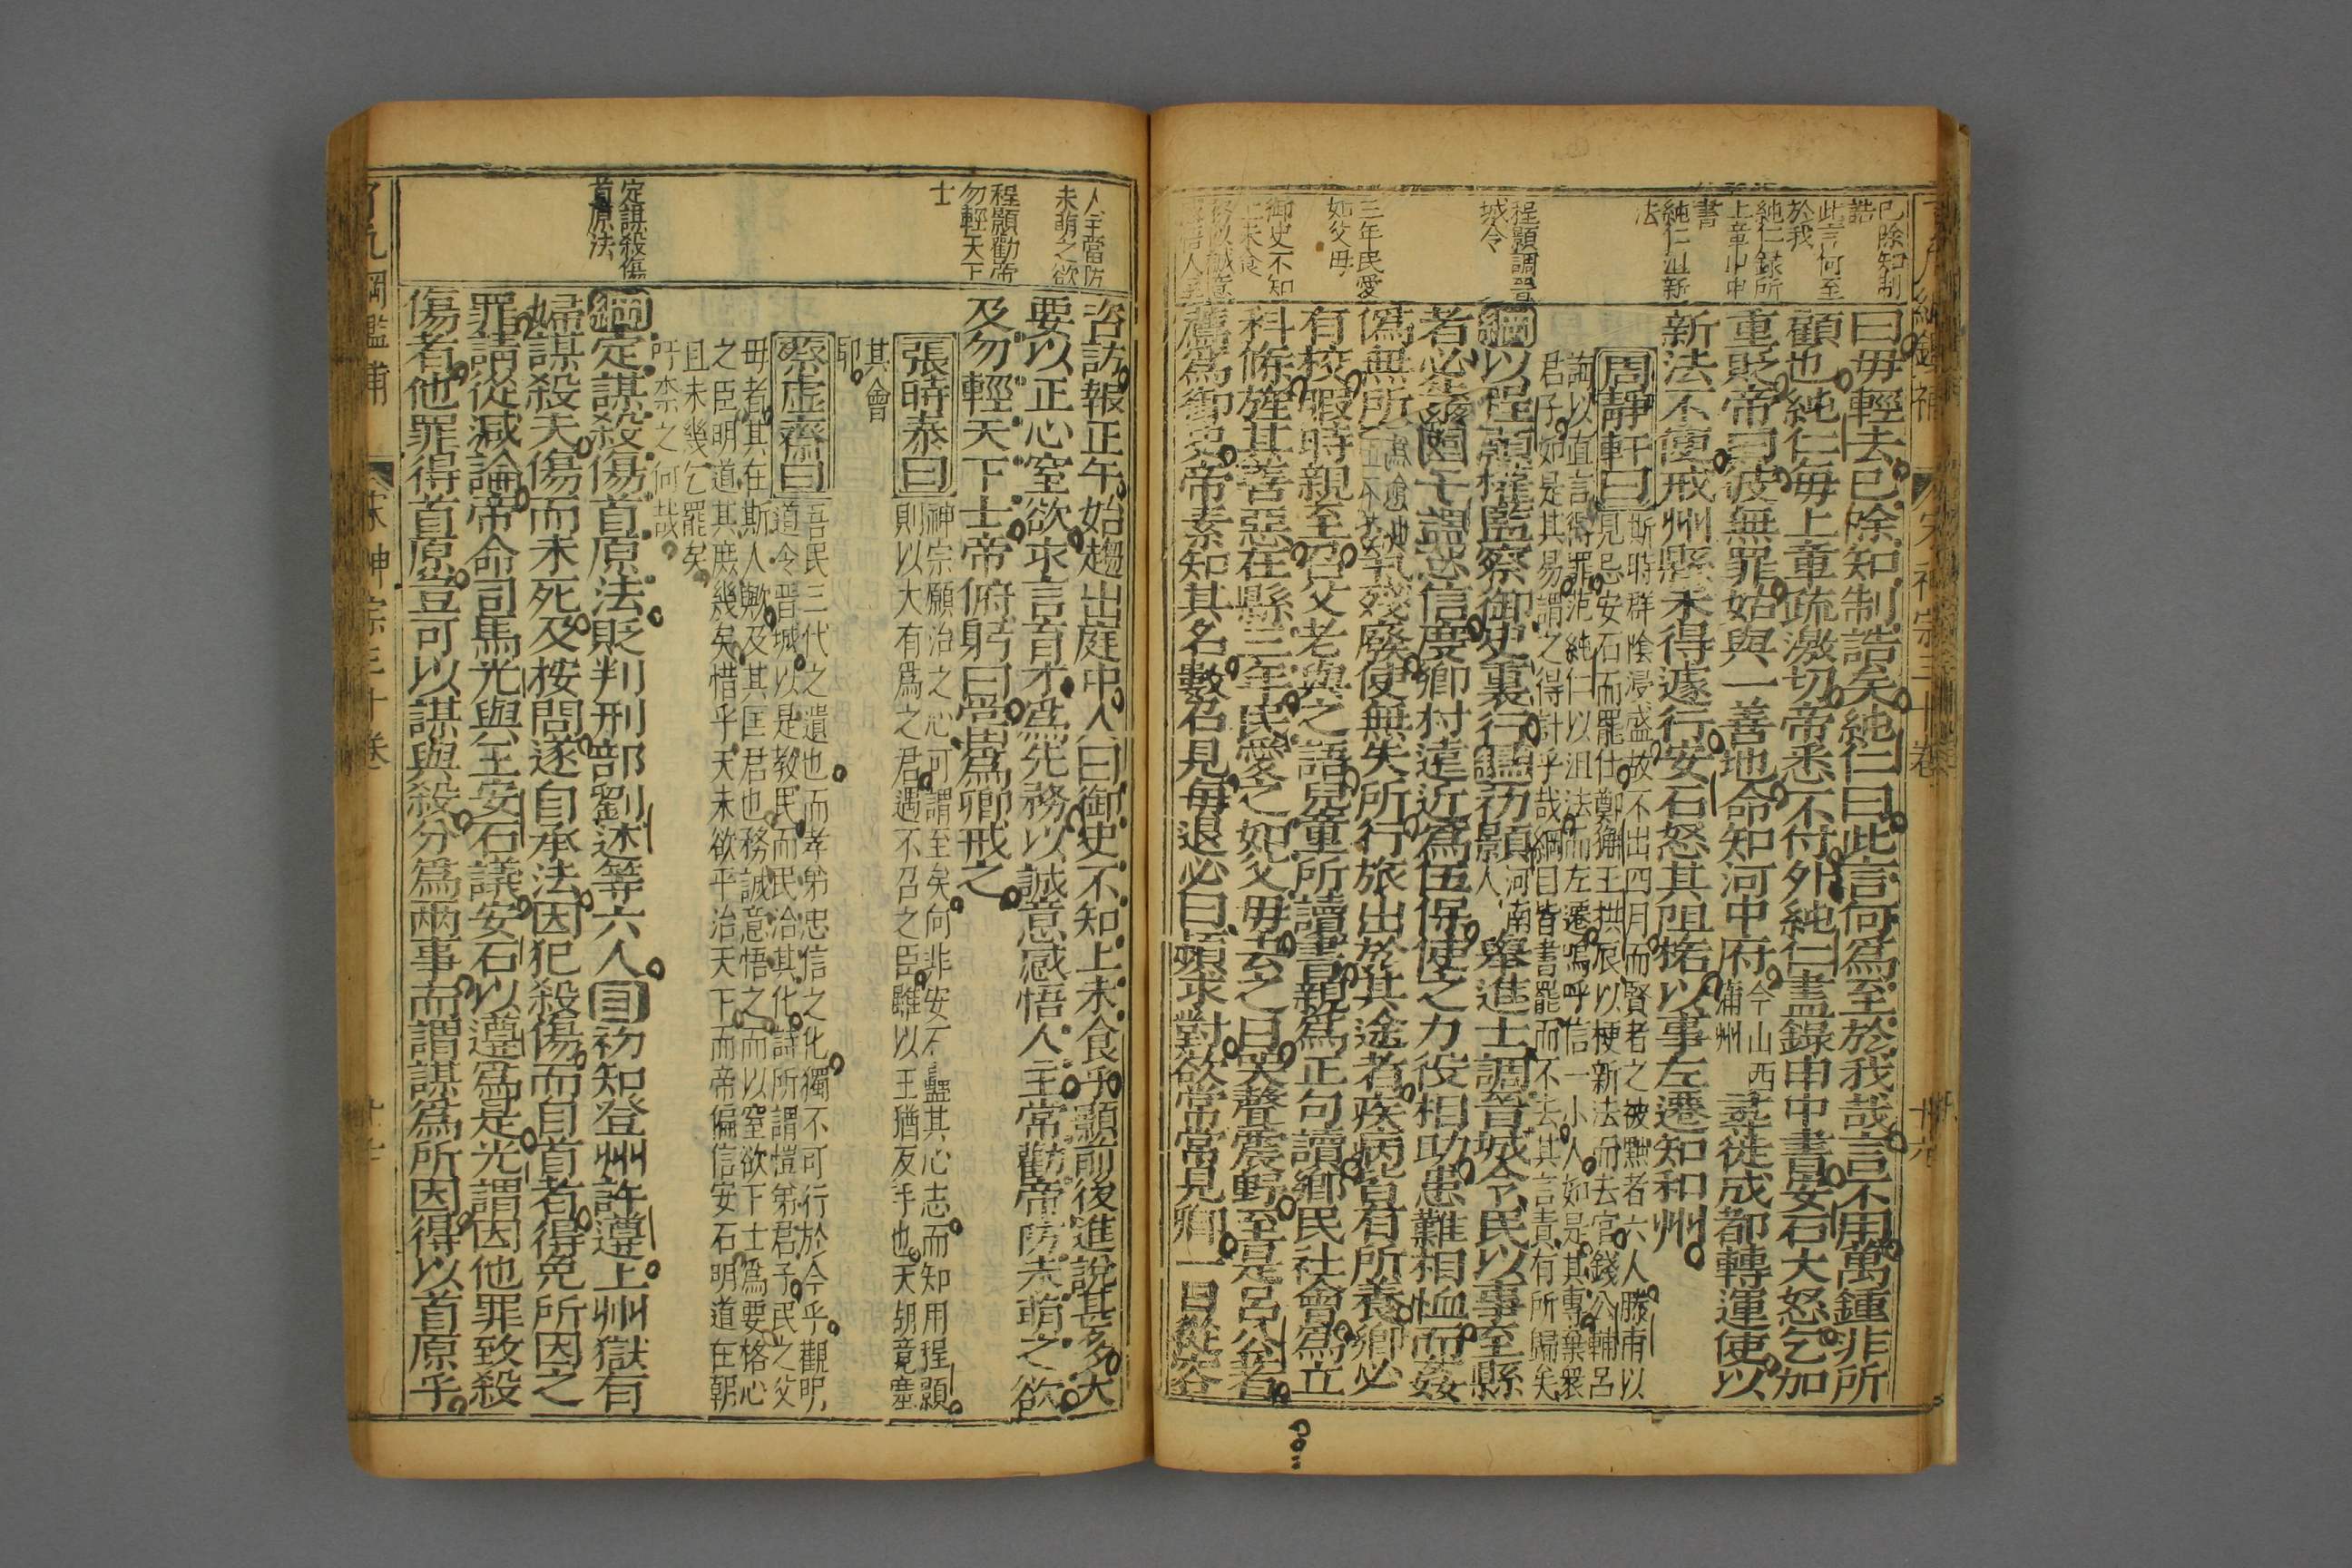 已除知制
誥
此言何至
於我
純仁錄所
上章申中
書
純仁沮新
法
程顥調晉
城令
三年民愛
如父母
御史不知
上未食
務以誠意
感悟人主
曰毋輕去已除知制誥矣純仁曰此言何爲至於我哉言不用萬鍾非所
顧也純仁每上章疏激切帝悉不付外純仁盡錄申中書安石大怒乞加
重貶帝曰彼無罪姑與一善地命知河中府今山西蒲州尋徙成都轉運使以
新法不便戒州縣未得遽行安石怒其沮格以事左遷知和州
周靜軒曰斯時群陰浸盛故不出四月而賢者之被黜者六人滕甫以
見忌安石而罷仕鄭獬王拱辰以梗新法而去官錢公輔呂
誨以直言得罪范純仁以沮法而左遷嗚呼信一小人如是其專棄衆
君子如是其易謂之得計乎哉綱目皆書罷而不去其言責有所歸矣
綱以程顥權監察御史裏行目初顥河南人舉進士調晉城令民以事至縣
者必告以孝悌忠信度鄉村遠近爲伍保使之力役相助患難相恤而姦
僞無所容凡孤煢殘廢使無失所行旅出於其途者疾病皆有所養鄉必
有校暇時親至召父老與之語兒童所讀書親爲正句讀鄉民社會爲立
科條旌其善惡在縣三年民愛之如父母去之日哭聲震野至是呂公著
薦爲御史帝素知其名數召見每退必曰頻求對欲常常見卿一日從容
了凡綱鑑補
宋神宗三十卷
人主當防
未萌之欲
程顥勸帝
勿輕天下
士
定謀殺傷
首原法
咨訪報正午始趨出庭中人曰御史不知上未食乎顥前後進說甚多大
要以正心窒欲求言育才爲先務以誠意感悟人主常勸帝防未萌之欲
及勿輕天下士帝俯躬曰當爲卿戒之
張時泰曰神宗願治之心可謂至矣向非安石蠱其心志而知用程顥
則以大有爲之君遇不召之臣雖以王猶反手也天胡竟塞
其會
耶
蔡虛齋曰吾民三代之遺也而孝弟忠信之化獨不可行於今乎觀明
道令晉城以是教民而民洽其化詩所謂愷弟君子民之父
毋者其在斯人歟及其匡君也務誠意悟之而以窒欲下士爲要格心
之臣明道其庶幾矣惜乎天未欲平治天下而帝偏信安石明道在朝
且未幾乞罷矣
吁柰之何哉
綱定謀殺傷首原法貶判刑部劉述等六人目初知登州許遵上州獄有
婦謀殺夫傷而未死及按問遂自承法因犯殺傷而自首者得免所因之
罪請從減論帝命司馬光與王安石議安石以遵爲是光謂因他罪致殺
傷者他罪得首原豈可以謀與殺分爲兩事而謂謀爲所因得以首原乎